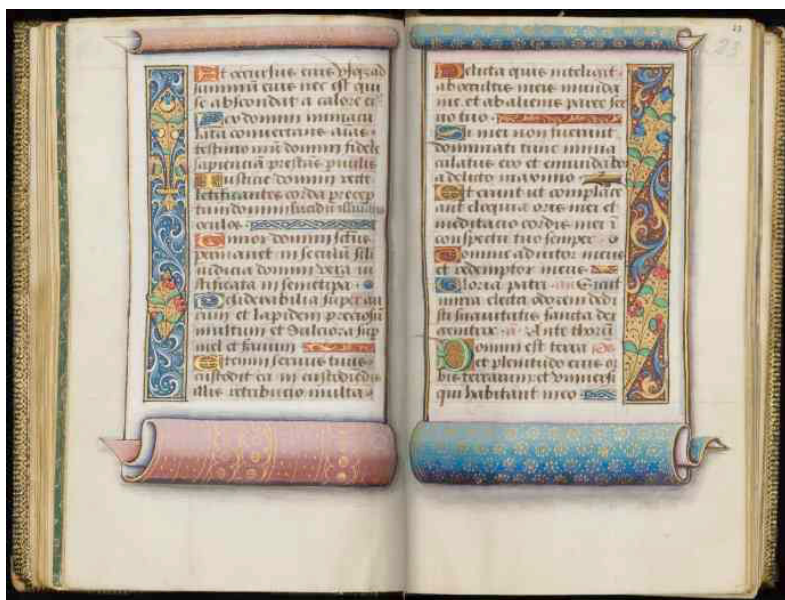 Et occursus eius usq; ad
summum eius nec est qui
se abscondat a calore ei
Lex domini inmacu
lata convertens aīas
testimoniū domini fidele
sapienciā prestās parvulis
Justicie domini recte
letificantes corda precep
tum domini lucidū illuminās
oculos
Timor domini sctūs
permanet in seculū sclī
iudicia domini vera iu
stificata in semetipa
Desiderabilia super au
rum et lapidem preciosū
multum et dulciora sup
mel et favum
Etenim servus tuus
custodit ea in custodiēdis
illis retribucio multa
23
23
Delicta quis intelligit
ab occultis meis munda
me et ab alienis parce ser
vo tuo
Si mei non fuerint
dominati tunc inma
culatus ero et emundabor
a delicto maximo
Et erunt ut complace
ant eloquia oris mei et
meditacio cordis mei ī
conspectu tuo semper
Domine adiutor meus
et redemptor meus
Gloria patri Sicut
mirra electa odorem dedi
sti suavitatis sancta dei
genitrix a Ante thorū
Domini est terra
et plenitudo eius or
bis terrarum et universi
qui habitant in eo